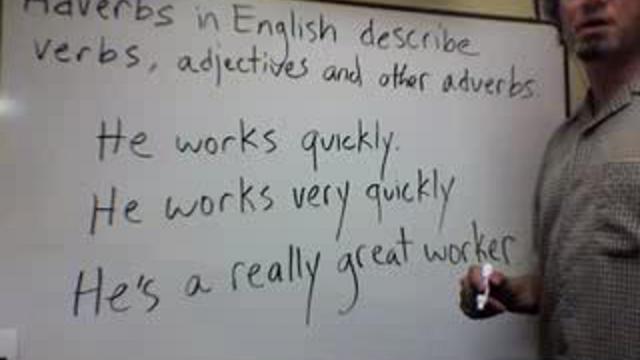 Adverbs in English describe
verbs, adjectives and other adverbs.
He works quickly.
He works very quickly
He's a really great worker